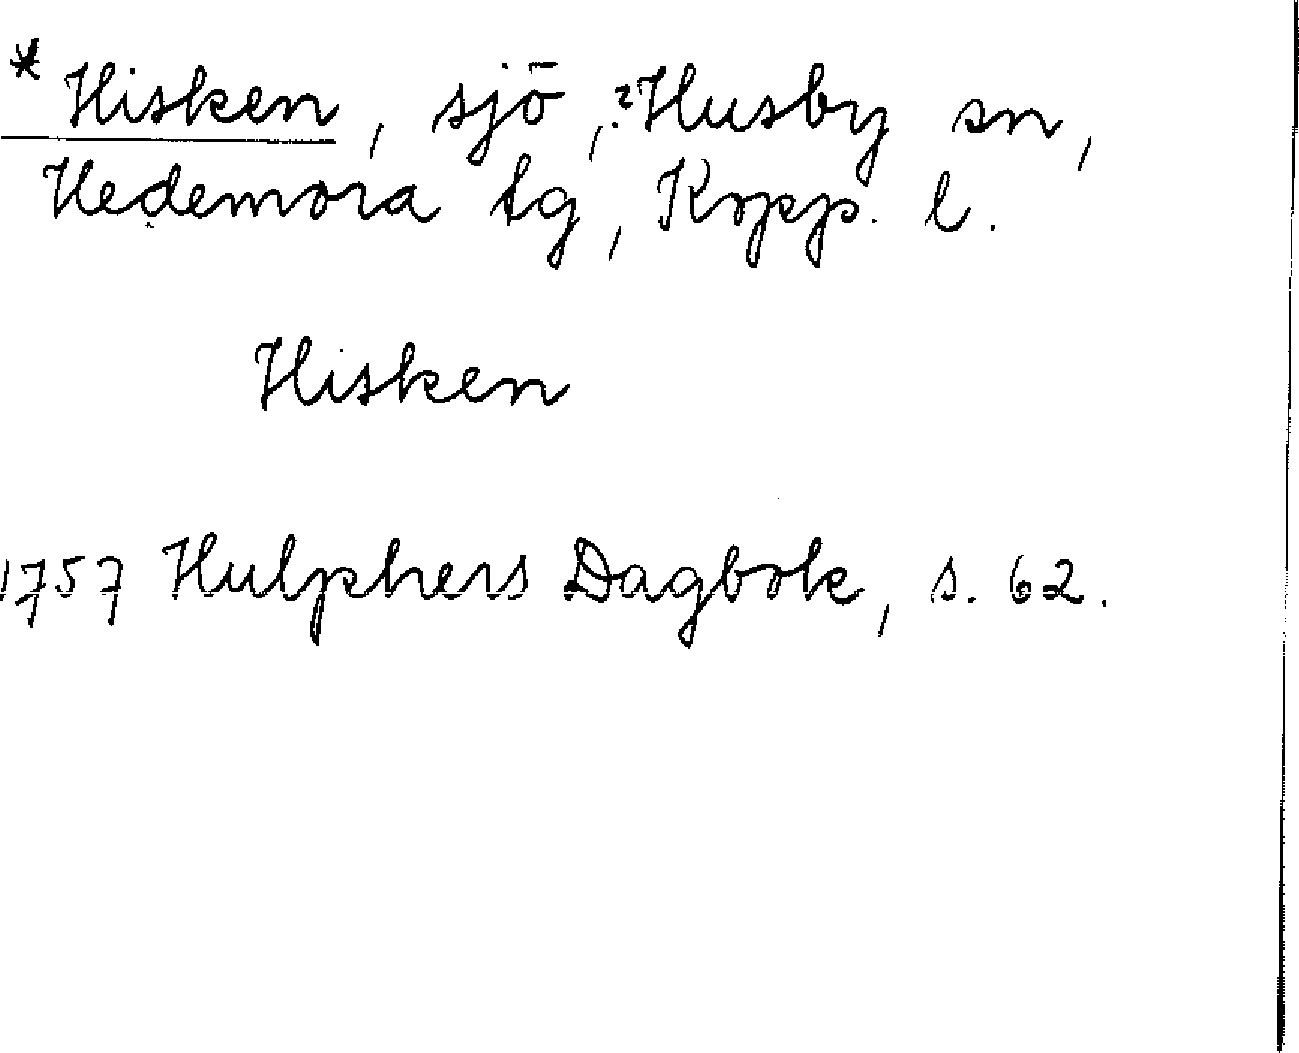 *Hisken, sjö, ?Husby sn,
Hedemora tg, Kopp. l.
Hisken
1757 Hulphers Dagbok, s. 62.